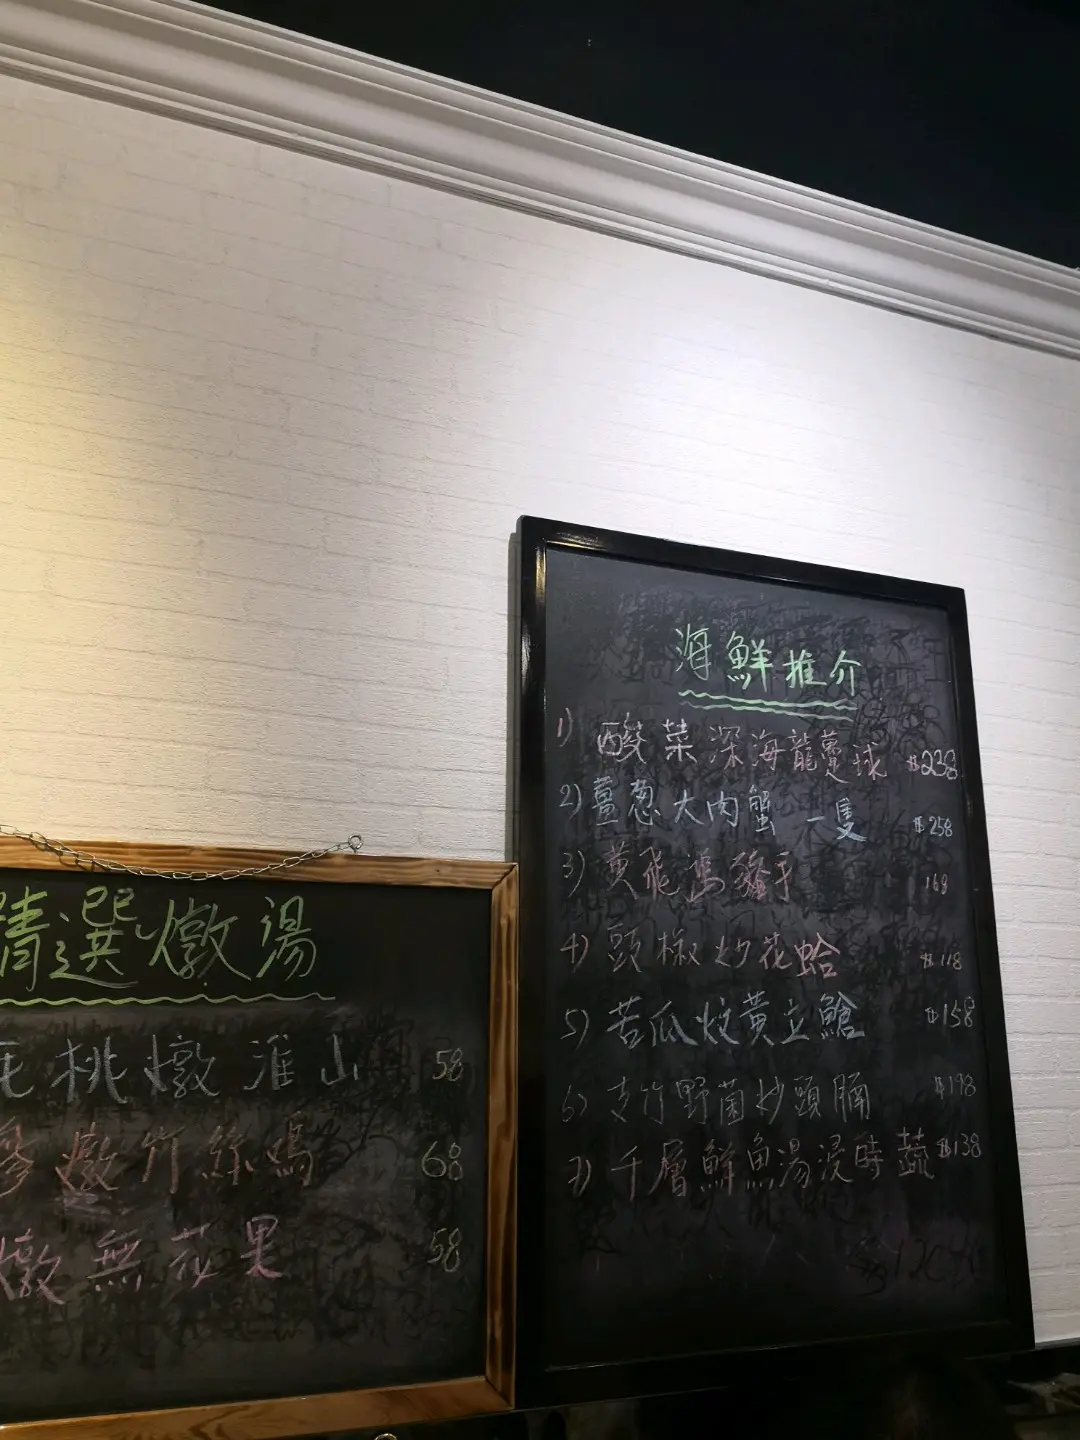 精選燉湯
桃燉淮山 58
燉竹絲鳮 68
燉無花果 58
海鮮推介
1) 酸菜深海龍躉 $238
2) 薑葱大肉蟹 一隻 $258
3) 黃飛鴻 168
4) 頭椒炒花蛤 $118
5) 苦瓜炆黃立鯧 $158
6) 支竹野菌炒頭腩
7) 千層鮮魚湯浸時蔬 $138